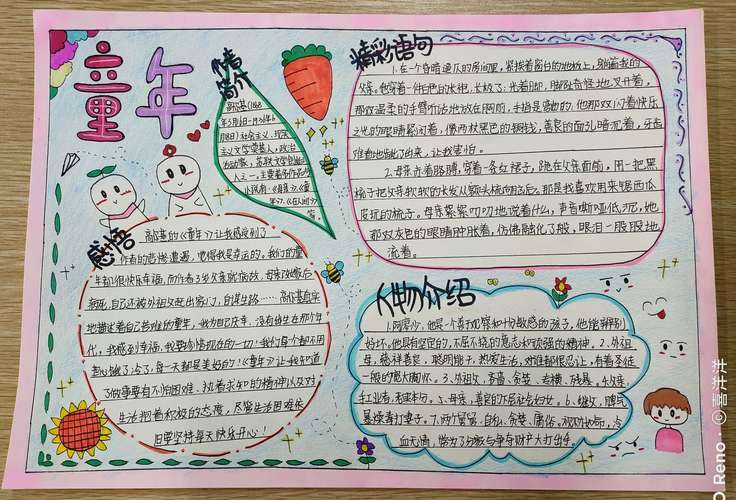 童年
作者
简介
高尔基(1868
年3月16日-1936年6
月18日)社会主义、现实
主义文学奠基人,政治
活动家,苏联文学创始
人之一,主要著作作品
小说有:《母亲》、《童
年》、《在人间》
等。
精彩语句
1.在一个昏暗
的房间里,紧挨着窗户的地板上,躺着我的
父亲。他穿着一件白色的水
光着脚,脚趾奇怪地叉开着,
那双温柔的手臂
地放在胸前,手指是弯曲的。他那双闪着快乐
之光的眼睛紧闭着,像两枚黑色的铜钱,善良的面孔暗沉着,牙齿
难看地龇了出来,让我害怕。
2.母亲
着胳膊,穿着一条红裙子,跪在父亲面前,用一把黑
梳子把父亲软软的长发从额头梳向脑后,那是我喜欢用来锯西瓜
皮玩的梳子,母亲絮絮叨叨地说着什么,声音嘶哑低沉,她
那双灰色的眼睛肿胀着,仿佛融化了般,眼泪一股股地
流着。
感悟
高尔基的《童年》让我感受到了
作者的悲惨遭遇,觉得我是幸运的。我们的童
年都很快乐幸福,而作者3岁父亲就病故,母亲改嫁后
病死,自己还被外祖父赶出家门,自谋生路……高尔基真实
地描述着自己苦难的童年,我为自己庆幸,没有诞生在那个年
代,我感到幸福,我要珍惜现在的一切!我们每个都不用
担心饿了、冷了,每一天都是美好的!《童年》让我知道
了做事要有不怕困难、执着求知的精神以及对
生活抱着积极的态度,尽管生活困难依
旧要坚持每天快乐开心!
人物介绍
1.阿廖沙,他是一个善于观察和十分敏感的孩子,他能辨别
好坏。他具有坚定的,不屈不挠的意志和顽强的精神。2.外祖
母,慈祥善良,聪明能干,热爱生活,对谁都很忍让,有着圣徒
一般的宽大胸怀。3.外祖父,吝啬、贪婪、专横、残暴。4.
5.母亲,善良的
妇女 6.继父,脾气
暴燥毒打妻子。7.两个舅舅,自私、贪婪、
冷
血无情,常为了分家与争夺财产大打出手。
Reno
©喜洋洋